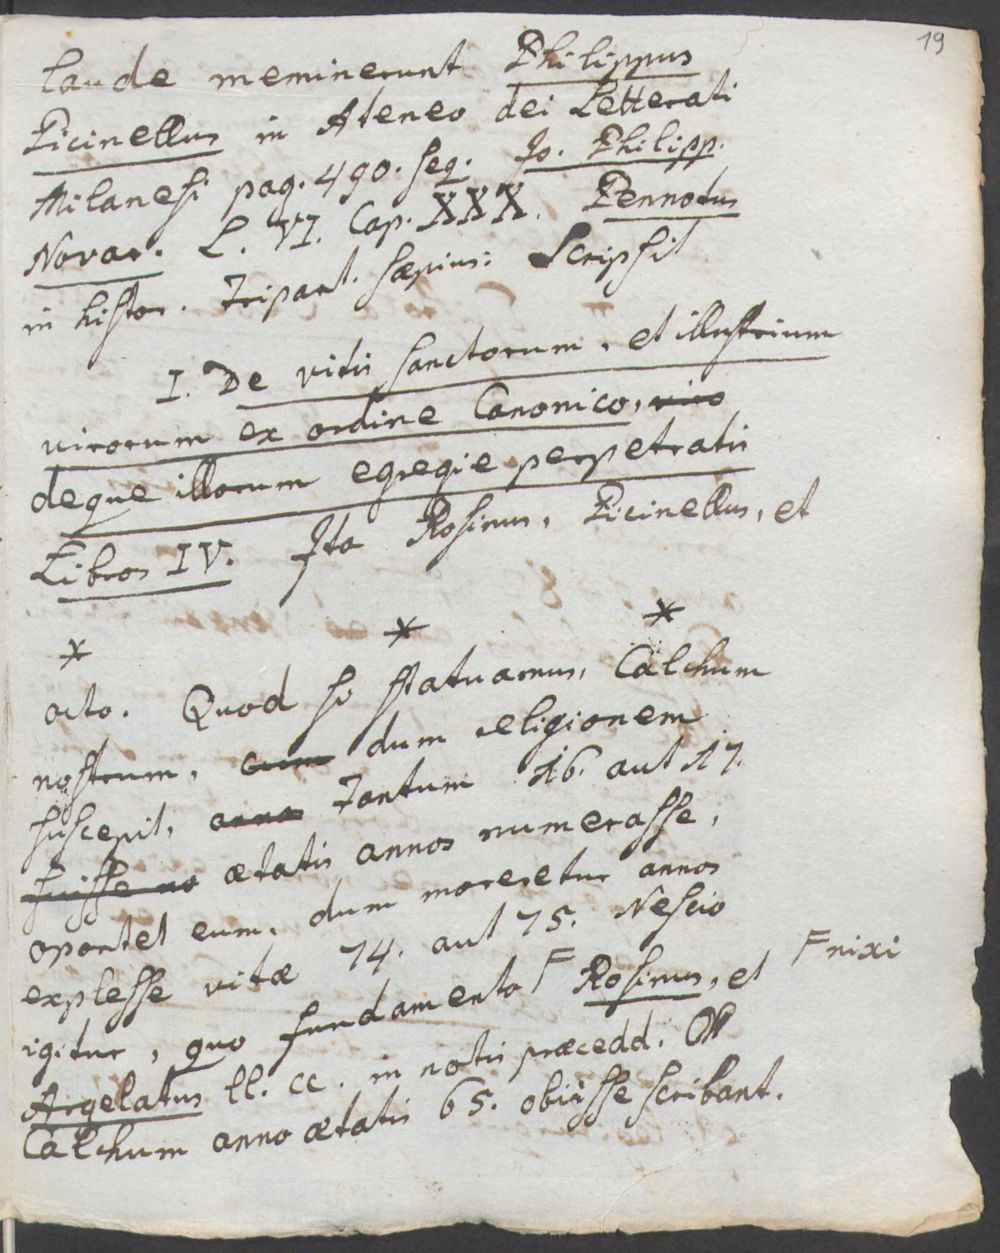 19
laude meminerunt Philippus
Picinellus in Ateneo dei Letterati
Milanesi pag. 490. seq. Jo. Philipp.
Novar. L. VI. Cap. XXX. Pennotus
in histor. Tripart. sæpius: Scripsit
I. De vitis sanctorum, et illustrium
virorum ex ordine Canonico, viro
deque illorum egregie perpetratis
Libros IV. Ita Rosinus, Picinellus, et
* * *
octo. Quod si statuamus, Calchum
nostrum, cum dum religionem
suscepit, anno tantum 16. aut 17.
fuisse na ætatis annos numerasse,
oportet eum, dum moreretur annos
explesse vitæ 74. aut 75. Nescio
igitur, quo fundamento F Rosinus, et F nixi
Argelatus ll. cc. in notis præcedd.
Calchum anno ætatis 65. obiisse scribant.